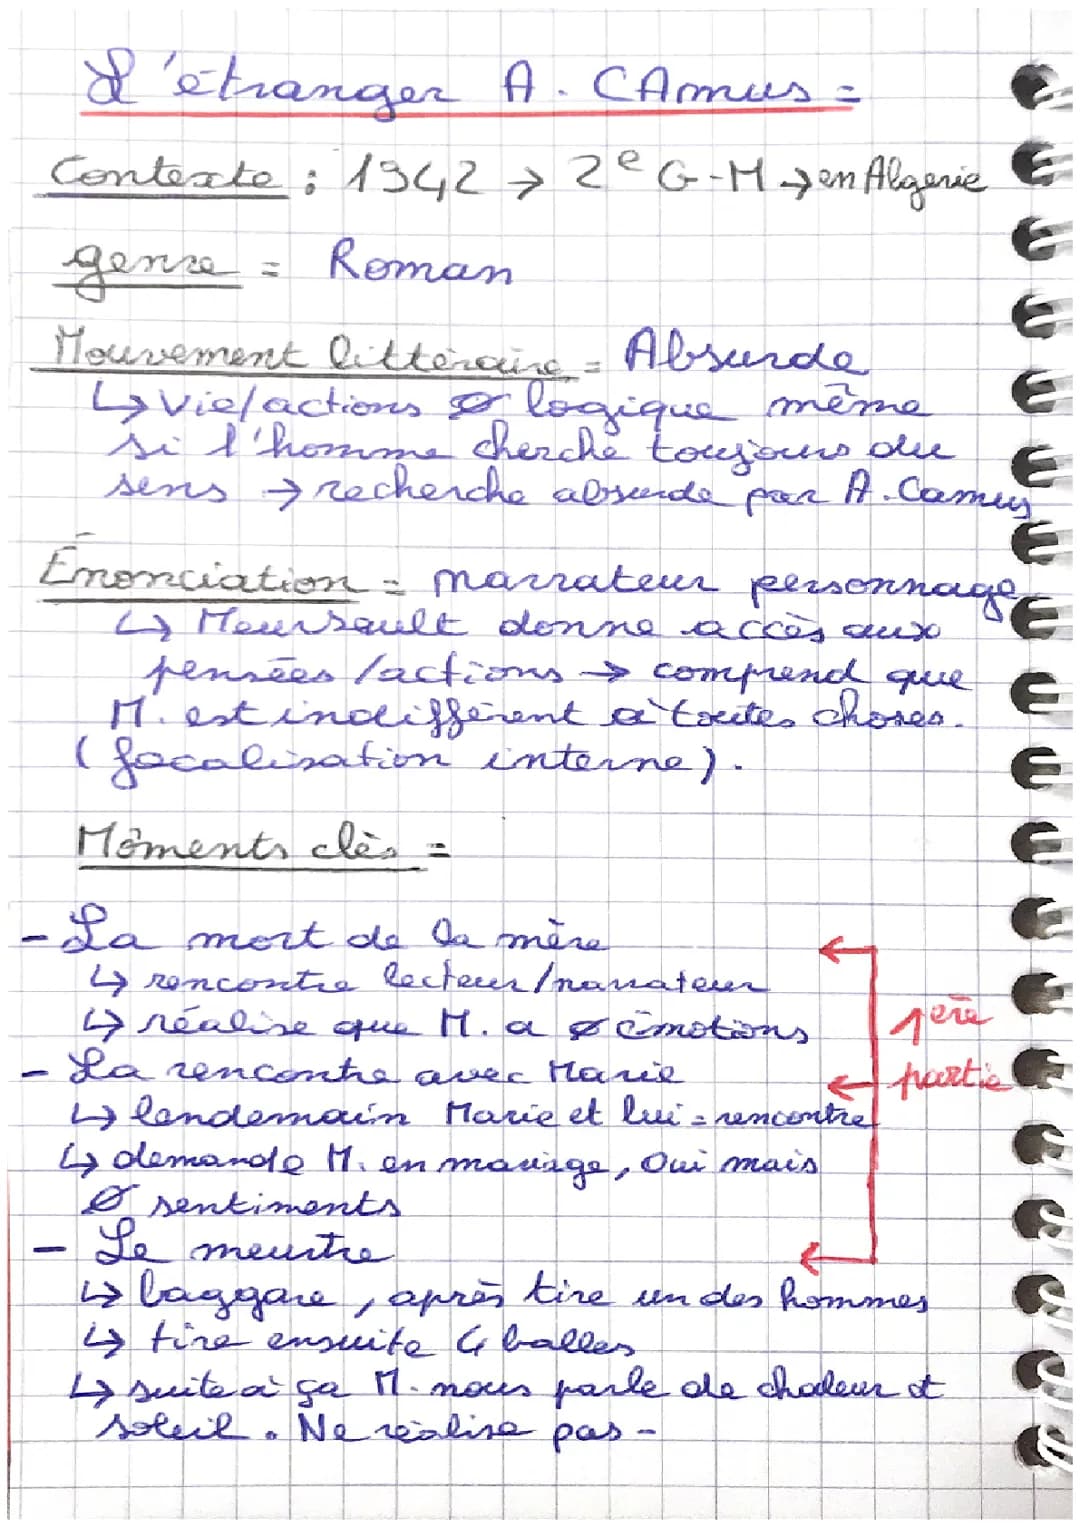 L'étranger A. CAmus =
Contexte : 1942 → 2e G-M → en Algerie
genre = Roman
Mouvement littéraire = Absurde
↳ Vie/actions ø logique même
si l'homme cherche toujours du
sens → recherche absurde par A. Camus
Énonciation = narrateur personnage
↳ Meursault donne accès aux
pensées /actions → comprend que
M. est indifférent à toutes choses.
(focalisation interne).
Moments clès =
- La mort de la mère
↳ rencontre lecteur/narrateur
↳ réalise que M. a ø émotions
1ère
- La rencontre avec Marie
partie
↳ lendemain Marie et lui = rencontre
↳ demande M. en mariage, Oui mais
ø sentiments
- Le meurtre
↳ baggare, après tire un des hommes
↳ tire ensuite 4 balles
↳ suite à ça M. nous parle de chaleur et
soleil. Ne réalise pas -